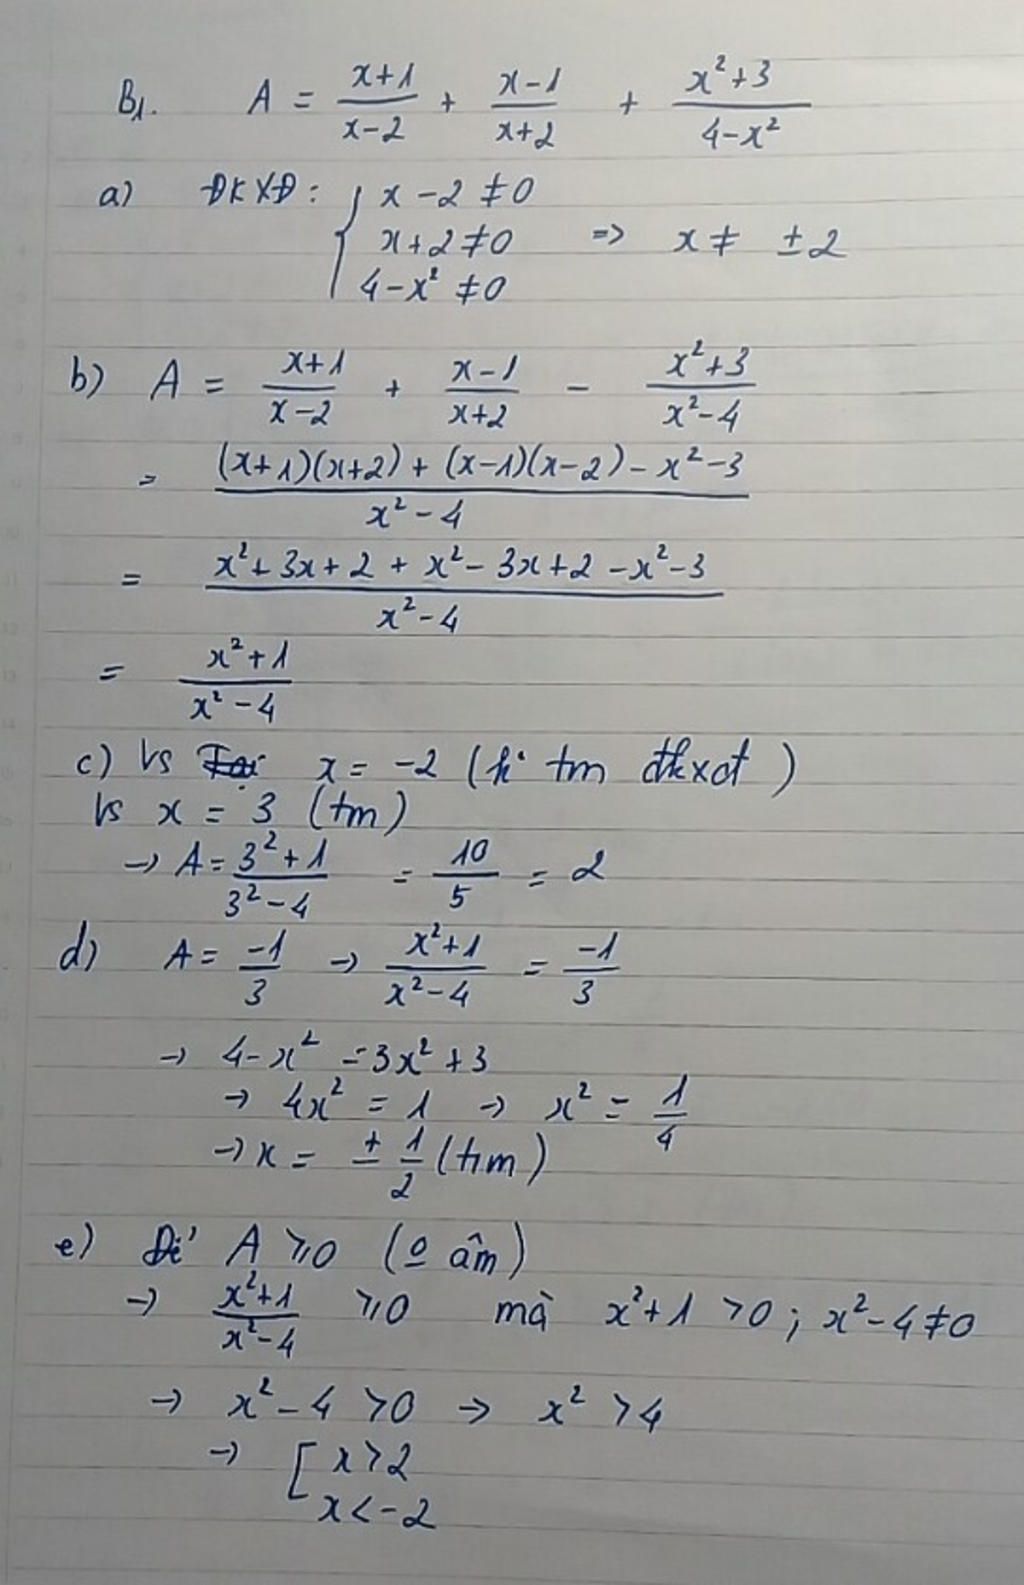 B1. A = (x+1)/(x-2) + (x-1)/(x+2) + (x²+3)/(4-x²)
a) ĐKXĐ: { x-2 ≠ 0
x+2 ≠ 0 => x ≠ ±2
4-x² ≠ 0
b) A = (x+1)/(x-2) + (x-1)/(x+2) - (x²+3)/(x²-4)
= ((x+1)(x+2) + (x-1)(x-2) - x² - 3)/(x²-4)
= (x²+3x+2 + x²-3x+2 - x²-3)/(x²-4)
= (x²+1)/(x²-4)
c) Vs x = -2 (k° tm đkxđ)
Vs x = 3 (tm)
→ A = (3²+1)/(3²-4) = 10/5 = 2
d) A = -1/3 → (x²+1)/(x²-4) = -1/3
→ 4-x² = 3x²+3
→ 4x² = 1 → x² = 1/4
→ x = ± 1/2 (tm)
e) Để A ⩾ 0 (o âm)
→ (x²+1)/(x²-4) ⩾ 0 mà x²+1 > 0 ; x²-4 ≠ 0
→ x²-4 > 0 → x² > 4
→ [ x > 2
x < -2